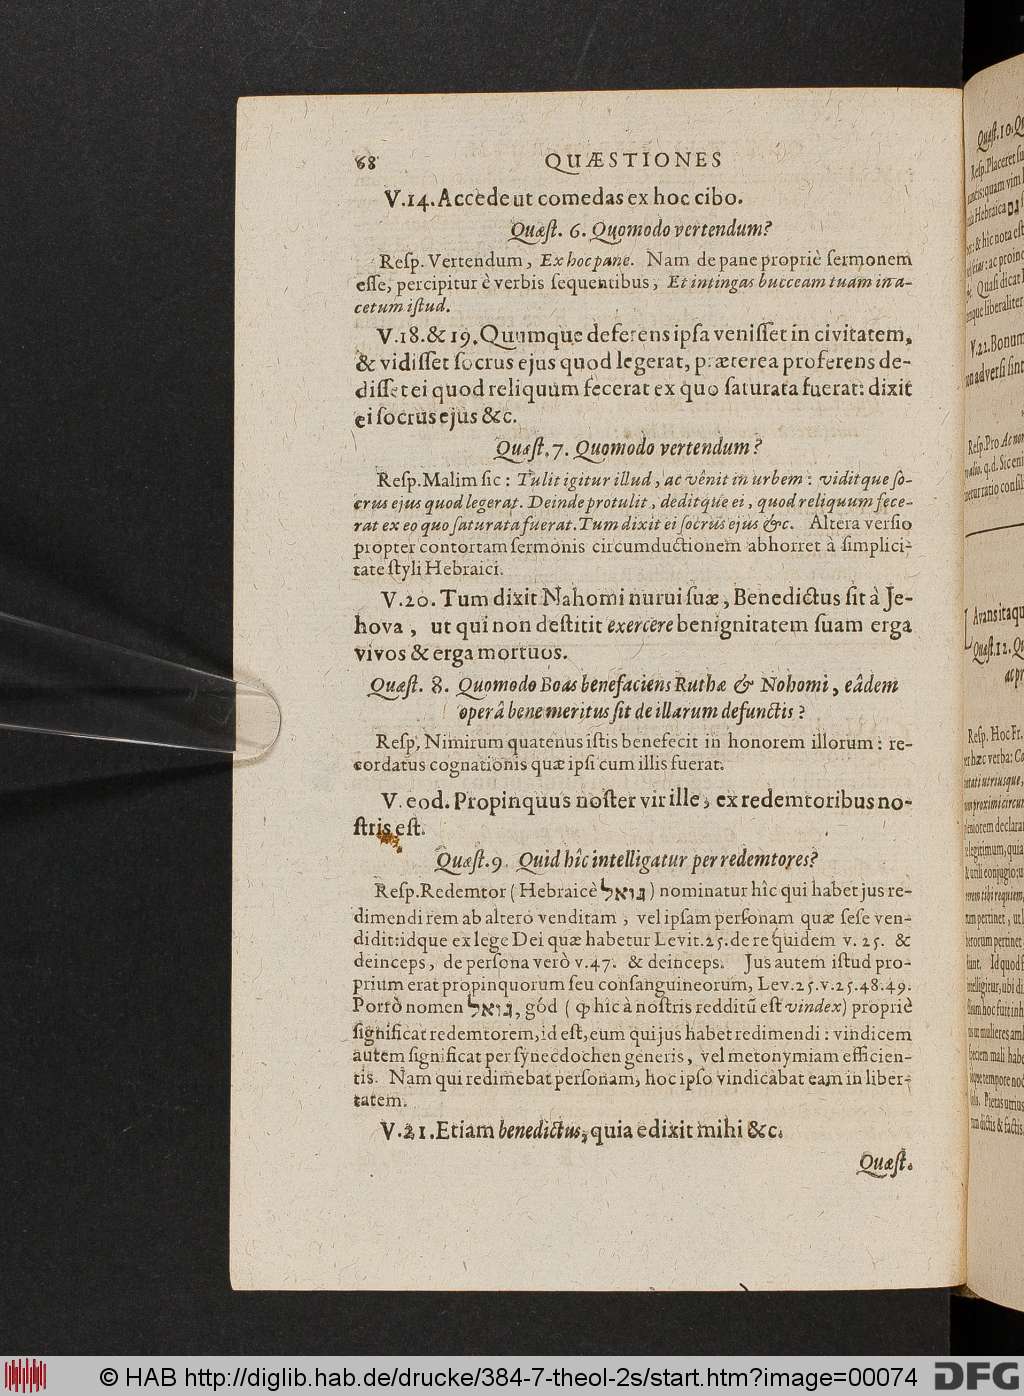 68 QUÆSTIONES
V.14. Accede ut comedas ex hoc cibo.
Quæſt. 6. Quomodo vertendum?
Reſp. Vertendum, Ex hoc pane. Nam de pane propriè ſermonem
eſſe, percipitur è verbis ſequentibus, Et intingas bucceam tuam in a-
cetum iſtud.
V.18. & 19. Quumque deferens ipſa veniſſet in civitatem,
& vidiſſet ſocrus ejus quod legerat, præterea proferens de-
diſſet ei quod reliquum fecerat ex quo ſaturata fuerat: dixit
ei ſocrus ejus &c.
Quæſt. 7. Quomodo vertendum?
Reſp. Malim ſic: Tulit igitur illud, ac vênit in urbem: viditque ſo-
crus ejus quod legerat. Deinde protulit, deditque ei, quod reliquum fece-
rat ex eo quo ſaturata fuerat. Tum dixit ei ſocrus ejus &c. Altera verſio
propter contortam ſermonis circumductionem abhorret à ſimplici-
tate ſtyli Hebraici.
V.20. Tum dixit Nahomi nurui ſuæ, Benedictus ſit à Je-
hova, ut qui non deſtitit exercere benignitatem ſuam erga
vivos & erga mortuos.
Quæſt. 8. Quomodo Boas benefaciens Ruthæ & Nohomi, eâdem
operâ bene meritus ſit de illarum defunctis?
Reſp. Nimirum quatenus iſtis benefecit in honorem illorum: re-
cordatus cognationis quæ ipſi cum illis fuerat.
V. eod. Propinquus noſter vir ille, ex redemtoribus no-
ſtris eſt.
Quæſt. 9. Quid hîc intelligatur per redemtores?
Reſp. Redemtor (Hebraicè גואל) nominatur hîc qui habet jus re-
dimendi rem ab altero venditam, vel ipſam perſonam quæ ſeſe ven-
didit: idque ex lege Dei quæ habetur Levit. 25. de re quidem v. 25. &
deinceps, de perſona verò v.47. & deinceps. Jus autem iſtud pro-
prium erat propinquorum ſeu conſanguineorum, Lev.25.v.25.48.49.
Porrò nomen גואל, gód (ꝙ hîc à noſtris redditū eſt vindex) propriè
ſignificat redemtorem, id eſt, eum qui jus habet redimendi: vindicem
autem ſignificat per ſynecdochen generis, vel metonymiam efficien-
tis. Nam qui redimebat perſonam, hoc ipſo vindicabat eam in liber-
tatem.
V.21. Etiam benedictus, quia edixit mihi &c.
Quæſt.
© HAB http://diglib.hab.de/drucke/384-7-theol-2s/start.htm?image=00074
DFG